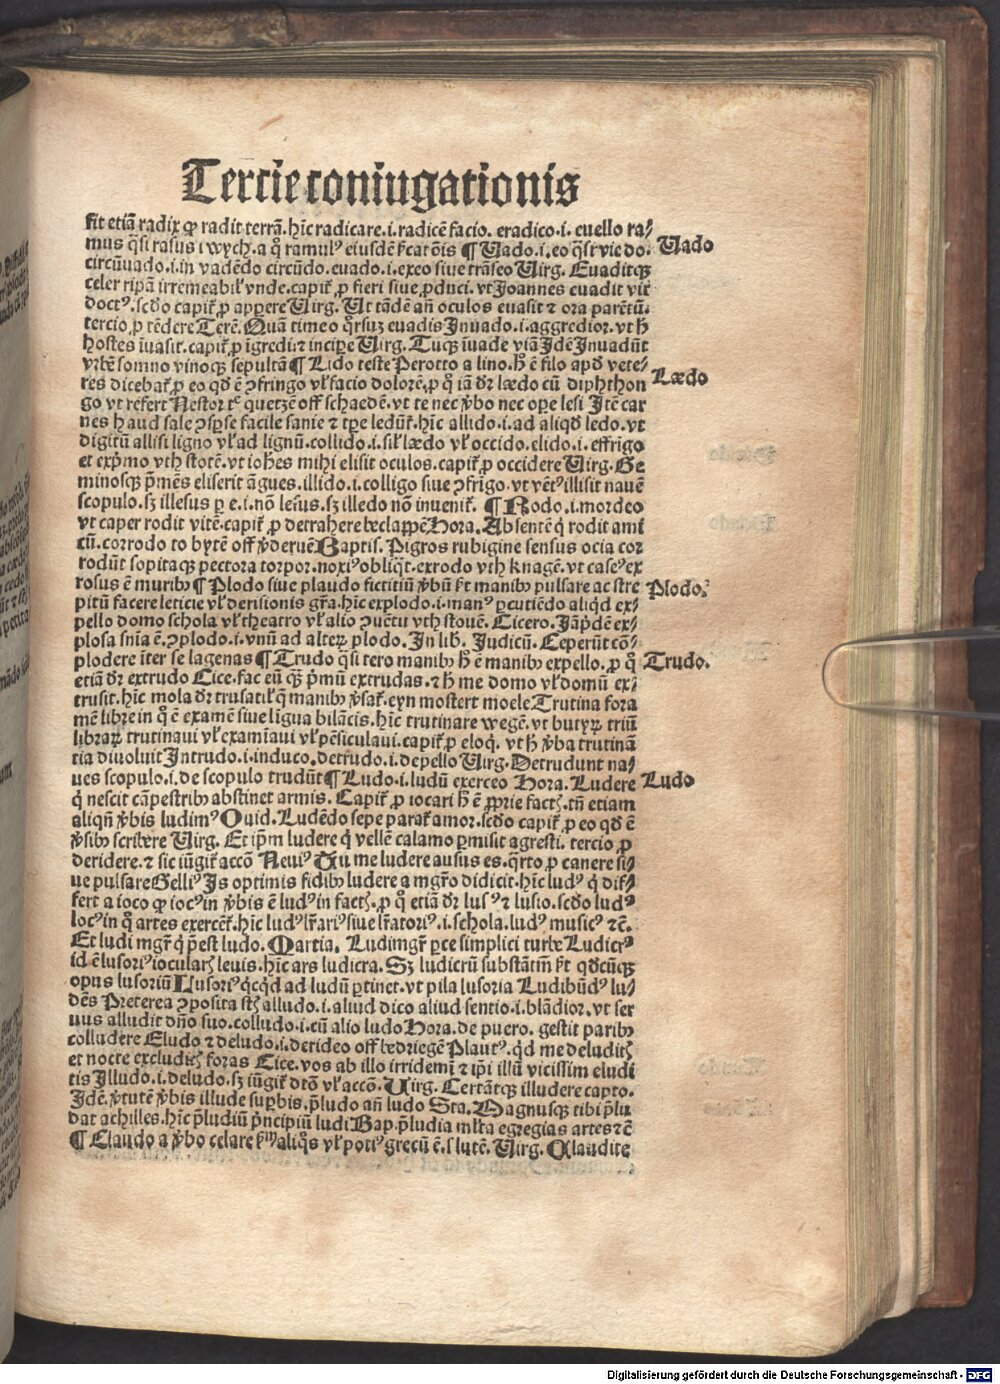 Tercie coniugationis
fit etiã radix ꝙ radit terrã. hĩc radicare .i. radicẽ facio. eradico .i. euello ra⸗
mus q̃si rasus i wych. a q̊ ramulꝰ eiusdẽ ¶ Uado .i. eo q̃si vie do.
Uado
circũuado .i. in vadẽdo circũdo. euado .i. exeo siue trãseo Uirg. Euaditqꝫ
celer ripã irremeabil' vnde. capit̃ ꝓ fieri siue ꝓduci. vt Joannes euadit vir
doctꝰ. scdo capit̃ ꝓ apꝑere Uirg. Ut tãdẽ añ oculos euasit ⁊ ora parẽtũ.
tercio ꝓ tẽdere Terẽ. Quã timeo q̊rsuꝫ euadis Inuado .i. aggredior. vt h̃
hostes iuasit. capit̃ ꝓ igredi ⁊ incipe Uirg. Tuqꝫ iuade viã Idẽ Inuadũt
vrbẽ somno vinoqꝫ sepultã ¶ Lido teste Perotto a lino. h̃ ẽ filo apd̃ vete⸗
res dicebat̃ ꝓ eo qd̃ ẽ ꝯfringo vl' facio dolorẽ. ꝓ q̊ iã dr̃ lædo cũ diphthon
Lædo
go vt refert Nestor quetzẽ off schaedẽ. vt te nec ꝟbo nec ope lesi Itẽ car
nes haud sale ꝯsꝑse facile sanie ⁊ tꝑe ledũt̃. hĩc allido .i. ad aliqd̃ ledo. vt
digitũ allisi ligno vl' ad lignũ. collido .i. sil' lædo vl' occido. elido .i. effrigo
et exp̃mo vth stotẽ. vt iohẽs mihi elisit oculos. capit̃ ꝓ occidere Uirg. Ge
minosqꝫ p̃mẽs eliserit ãgues. illido .i. colligo siue ꝯfrĩgo. vt vẽtꝰ illisit nauẽ
scopulo. sꝫ illesus ꝑ e .i. nõ lesus. sꝫ illedo nõ inuenit̃. ¶ Rodo .i. mordeo
vt caper rodit vitẽ. capit̃ ꝓ detrahere Hora. Absentẽ q̇ rodit ami
cũ. corrodo to bytẽ off Baptis. Pigros rubigine sensus ocia cor
rodũt sopitaqꝫ pectora torpor. noxiꝰ obliq̃t. exrodo vth knagẽ. vt caseꝰ ex
rosus ẽ muribꝫ ¶ Plodo siue plaudo fictitiũ ꝟbũ manibꝫ pulsare ac stre
Plodo.
pitũ facere leticie vl' derisionis gr̃a. hĩc explodo .i. manꝰ ꝑcutiẽdo aliqd̃ ex⸗
pello domo schola vl' theatro vl' alio ꝯuẽtu vth stouẽ. Cicero. ex⸗
plosa snĩa ẽ. ꝯplodo .i. vnũ ad alteꝝ plodo. In lib̃. Judicũ. Ceperũt cõ⸗
plodere iter se lagenas ¶ Trudo q̃si tero manibꝫ h̃ ẽ manibꝫ expello. ꝓ q̊
Trudo.
etiã dr̃ extrudo Cice. fac eũ qꝫ p̃mũ extrudas. ⁊ h̃ me domo vl' domũ ex⸗
trusit. hĩc mola dr̃ trusatil' q̃ manibꝫ. eyn mostert moele Trutina fora
mẽ libre in q̊ ẽ examẽ siue lĩgua bilãcis. hĩc trutinare wegẽ. vt butyꝝ triũ
libraꝝ trutinaui vl' examĩaui vl' pẽsiculaui. capit̃ ꝓ eloq̇. vt h̃ ꝟba trutinã
tia diuoluit Intrudo .i. induco. detrudo .i. depello Uirg. Detrudunt na⸗
ues scopulo .i. de scopulo trudũt ¶ Ludo .i. ludũ exerceo Hora. Ludere
Ludo
q̇ nescit cãpestribꝫ abstinet armis. Capit̃ ꝓ iocari h̃ ẽ ꝓprie tñ etiam
aliqñ ꝟbis ludimꝰ Ouid. Ludẽdo sepe parat̃ amor. scdo capit̃ ꝓ eo qd̃ ẽ
ꝟsibꝫ scribere Uirg. Et ip̃m ludere q̇ vellẽ calamo ꝑmisit agresti. tercio ꝓ
deridere. ⁊ sic iũgit̃ accõ Neuiꝰ me ludere ausus es. q̃rto ꝓ canere si⸗
ue pulsare Gelliꝰ Is optimis fidibꝫ ludere a mgr̃o didicit. hĩc ludꝰ q̇ dif⸗
fert a ioco ꝙ iocꝰ in ꝟbis ẽ ludꝰ in ꝓ q̊ etiã dr̃ lusꝰ ⁊ lusio. scdo ludꝰ
locꝰ in q̊ artes exercẽt̃. hĩc ludꝰ lr̃ariꝰ siue lr̃atoriꝰ .i. schola. ludꝰ musicꝰ ⁊c̃.
Et ludi mgr̃ q̇ p̃est ludo. Martia. Ludimgr̃ ꝑce simplici turbe Ludicrꝰ
id ẽ lusoriꝰ iocularis leuis. hĩc ars ludicra. Sꝫ ludicrũ substãtiñ qd̃cũqꝫ
opus lusoriũ Lusoriꝰ qcqd̃ ad ludũ ꝑtinet. vt pila lusoria Ludibũdꝰ lu⸗
dẽs Preterea ꝯposita st̃ alludo .i. aliud dico aliud sentio .i. blãdior. vt ser
uus alludit dño suo. colludo .i. cũ alio ludo Hora. de puero. gestit paribꝫ
colludere Eludo ⁊ deludo .i. derideo off bedriegẽ Plautꝰ. qd̃ me deluditis
et nocte excluditis foras Cice. vos ab illo irridemĩ ⁊ ipĩ illũ vicissim eludi
tis Illudo .i. deludo. sꝫ iũgit̃ dtõ vl' accõ. Uirg. Certãtqꝫ illudere capto.
Idẽ. ꝟtutẽ ꝟbis illude suꝑbis. p̃ludo añ ludo Sta. Magnusqꝫ tibi p̃lu
dat achilles. hĩc p̃ludiũ p̃ncipiũ ludi Bap. p̃ludia ml'ta egregias artes ⁊c̃
¶ Claudo a ꝟbo celare aliq̊s vl' potiꝰ grecũ ẽ. Uirg. Claudite
Digitalisierung gefördert durch die Deutsche Forschungsgemeinschaft - DFG